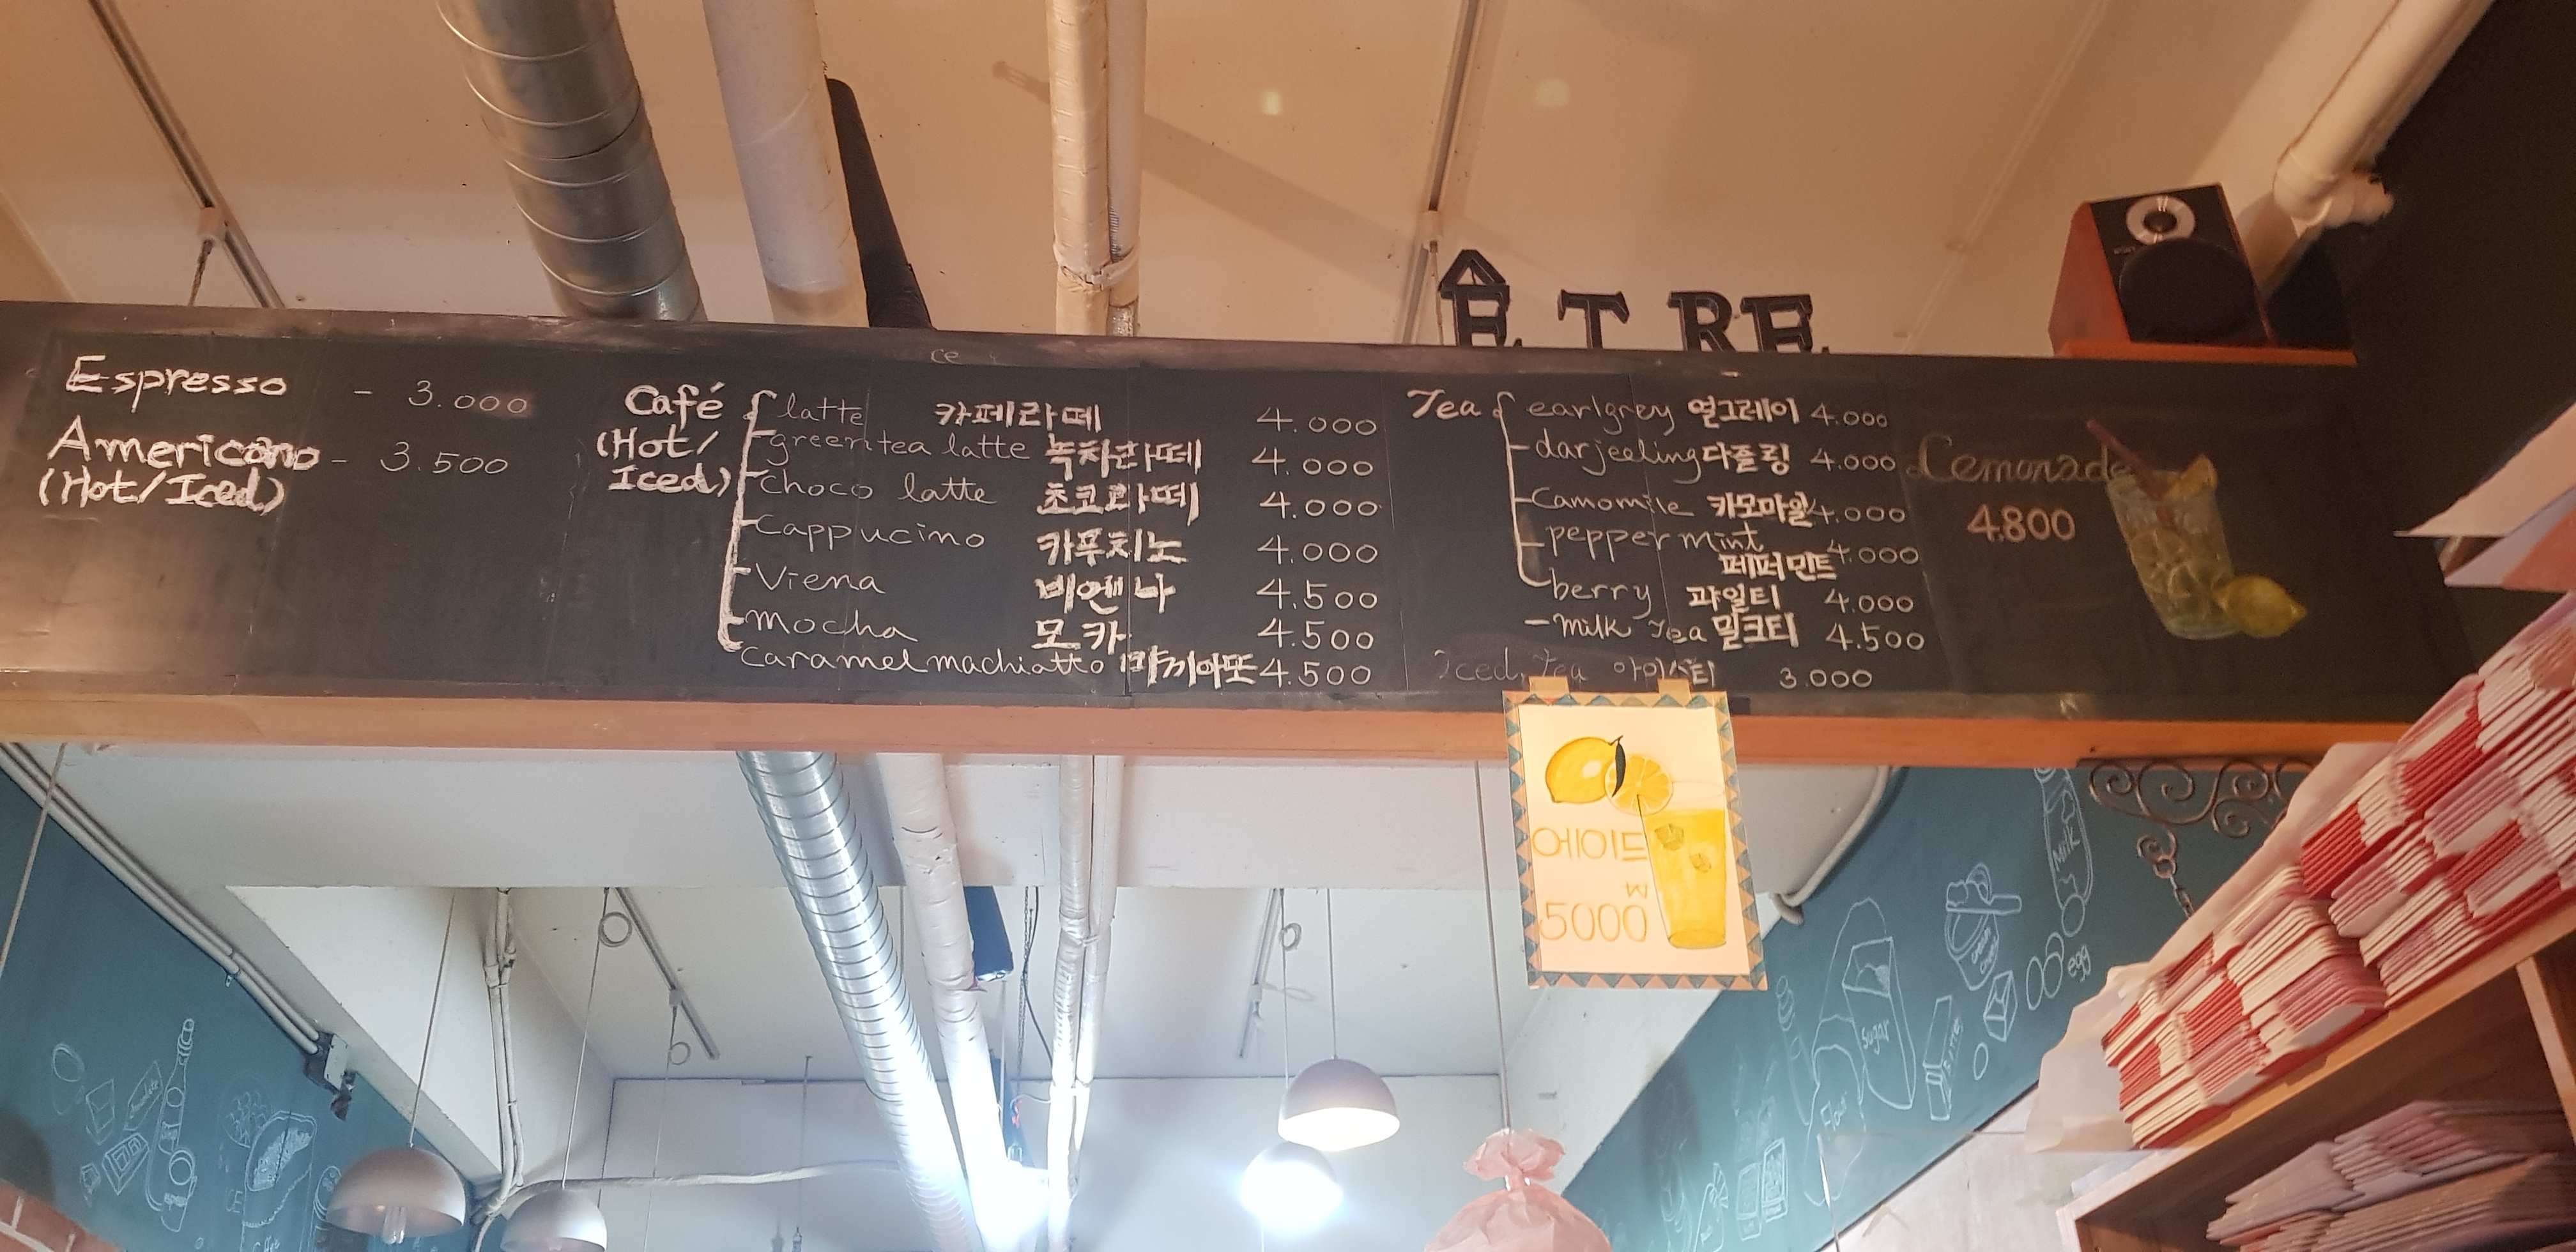 ÊTRE
ce
Espresso - 3.000
Americano - 3.500
(Hot/Iced)
Café
(Hot/
Iced)
latte 카페라떼 4.000
greentea latte 녹차라떼 4.000
choco latte 초코라떼 4.000
Cappucino 카푸치노 4.000
Viena 비엔나 4.500
mocha 모카 4.500
caramel machiatto 마끼아또 4.500
Tea
earlgrey 얼그레이 4.000
darjeeling 다즐링 4.000
Camomile 카모마일 4.000
peppermint 4.000
페퍼민트
berry 과일티 4.000
- milk Tea 밀크티 4.500
Iced Tea 아이스티 3.000
Lemonade
4.800
에이드
₩
5000
Milk
egg
Sugar
Flour